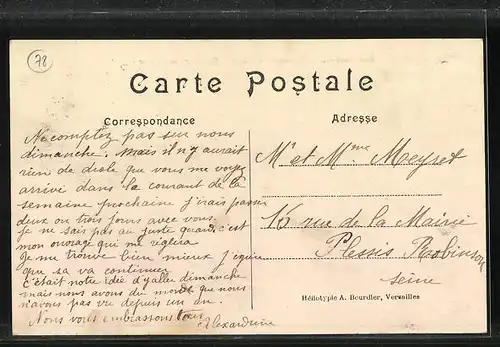 78
Carte Postale
Correspondance
Adresse
Ne comptez pas sur nous
dimanche. Mais il n'y aurait
rien de drole que vous me voyez
arrivé dans la courant de la
semaine prochaine j'irais passer
deux ou trois jours avec vous.
je ne sais pas au juste quand c'est
mon ouvrage qui me réglera
Je me trouve bien mieux j'espère
que sa va continuer
C'était notre idée d'y aller dimanche
mais nous avons du monde que nous
n'avons pas vu depuis un an.
Nous vous embrassons tous
Alexandrine
Mr et Mme Meyret
16 rue de la Mairie
Plessis Robinson
Seine
Héliotypie A. Bourdier, Versailles